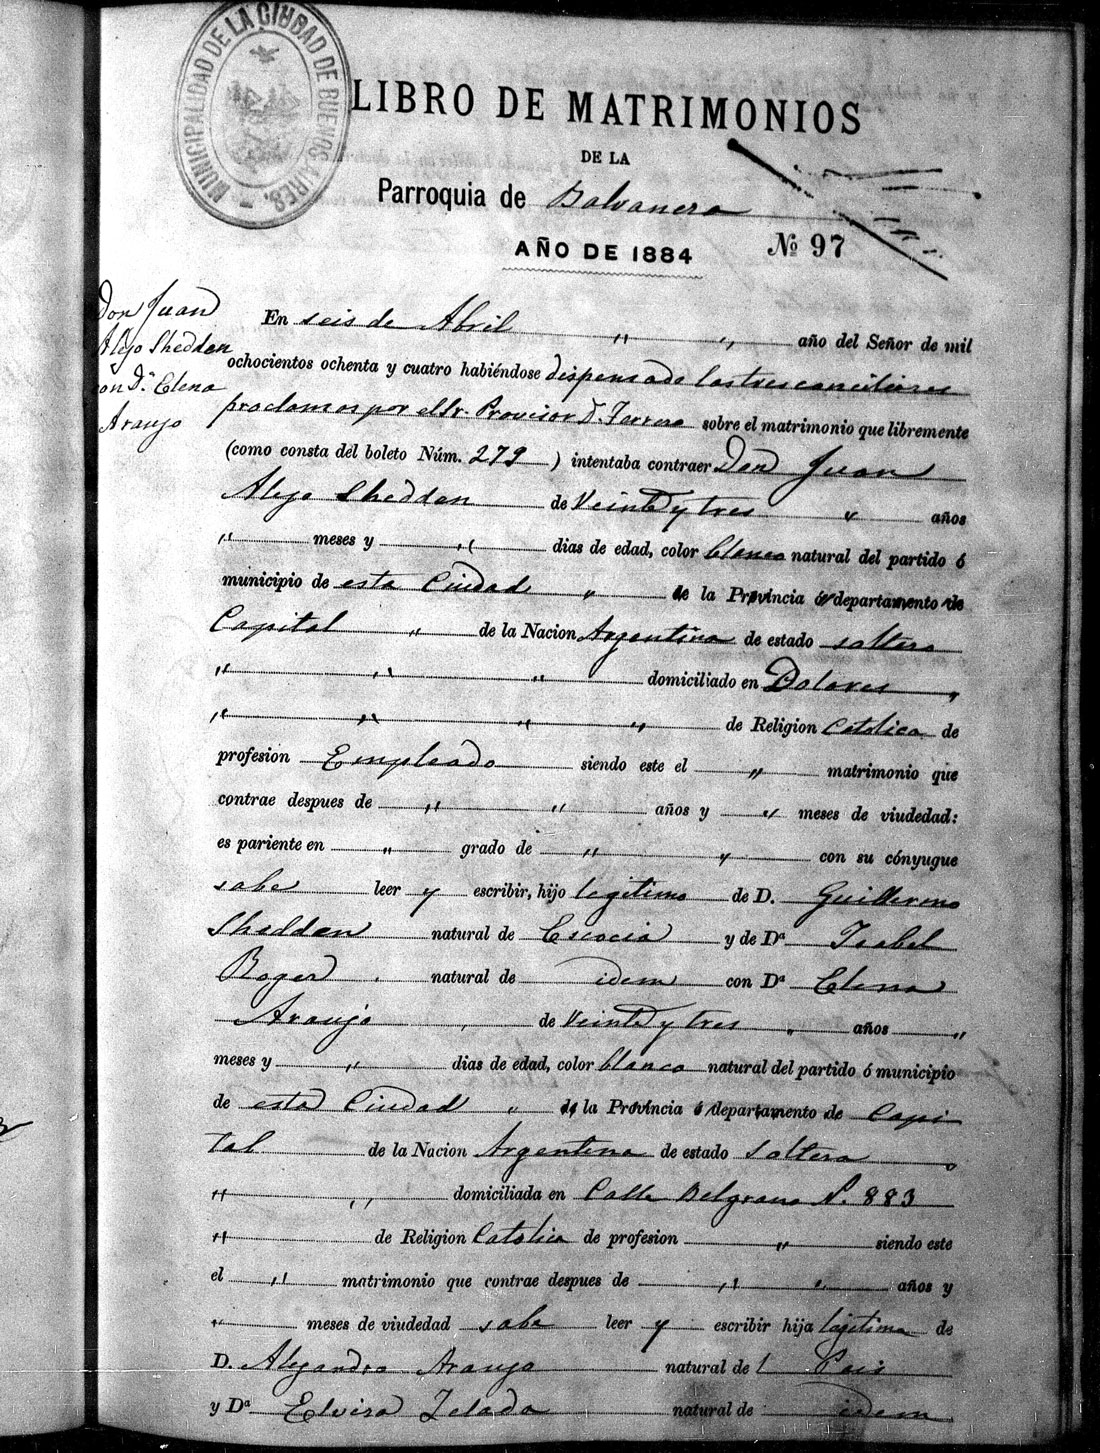 MUNICIPALIDAD DE LA CIUDAD DE BUENOS AIRES.
LIBRO DE MATRIMONIOS
DE LA
Parroquia de Balvanera
AÑO DE 1884
Nº 97
Don Juan
Alejo Sheddan
on Dª Elena
Araujo
En seis de Abril " " año del Señor de mil
ochocientos ochenta y cuatro habiéndose dispensado las tres conciliares
proclamas por el Sr. Provisor D. Ferrero sobre el matrimonio que libremente
(como consta del boleto Núm. 279 ) intentaba contraer Don Juan
Alejo Sheddan de Veinte y tres " años
" meses y " dias de edad, color blanco natural del partido ó
municipio de esta Ciudad " de la Provincia ó departamento de
Capital " de la Nacion Argentina de estado soltero
" " " domiciliado en Dolores "
" " " " de Religion Catolica de
profesion Empleado siendo este el " matrimonio que
contrae despues de " " años y " meses de viudedad:
es pariente en " grado de " " con su cónyugue
sabe leer y escribir, hijo legitimo de D. Guillermo
Sheddan natural de Escocia y de Dª Isabel
Roger natural de idem con Dª Elena
Araujo de Veinte y tres " años "
meses y " dias de edad, color blanco natural del partido ó municipio
de esta Ciudad " de la Provincia ó departamento de Capi
tal de la Nacion Argentina de estado Soltera
" " domiciliada en Calle Belgrano N. 883
" de Religion Catolica de profesion " siendo este
el " matrimonio que contrae despues de " " años y
" meses de viudedad sabe leer y escribir hija legitima de
D. Alejandro Araujo natural del Pais
y Dª Elvira Zelada natural de idem